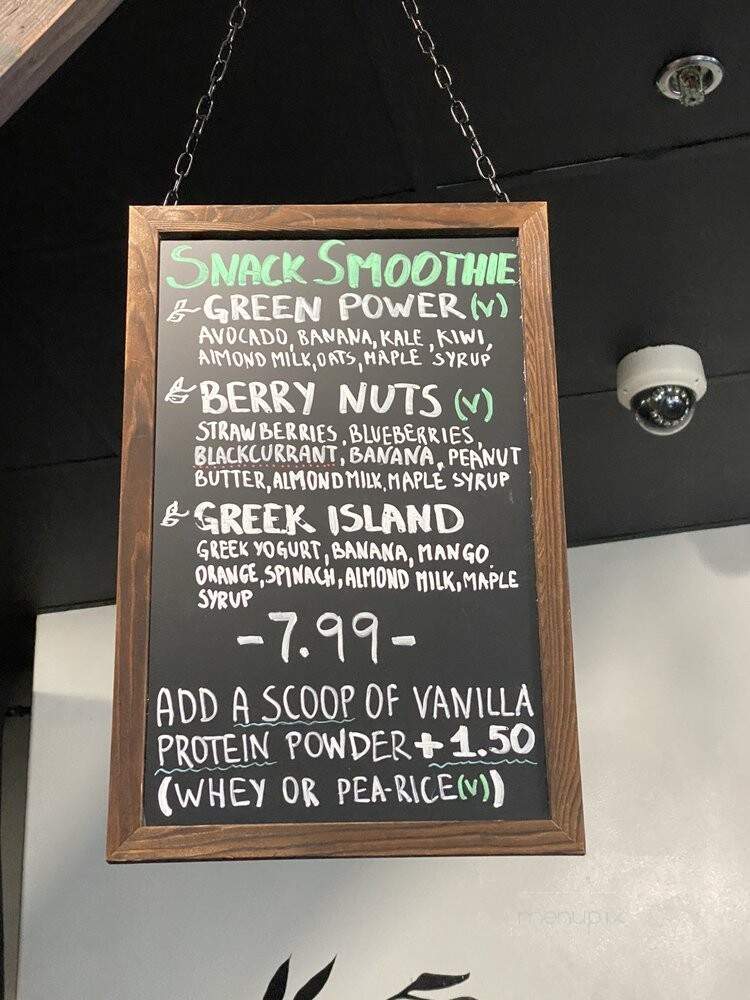 SNACK SMOOTHIE
GREEN POWER (V)
AVOCADO, BANANA, KALE, KIWI,
ALMOND MILK, OATS, MAPLE SYRUP
BERRY NUTS (V)
STRAWBERRIES, BLUEBERRIES,
BLACKCURRANT, BANANA, PEANUT
BUTTER, ALMOND MILK, MAPLE SYRUP
GREEK ISLAND
GREEK YOGURT, BANANA, MANGO,
ORANGE, SPINACH, ALMOND MILK, MAPLE
SYRUP
-7.99-
ADD A SCOOP OF VANILLA
PROTEIN POWDER +1.50
(WHEY OR PEA-RICE(V))
menupix